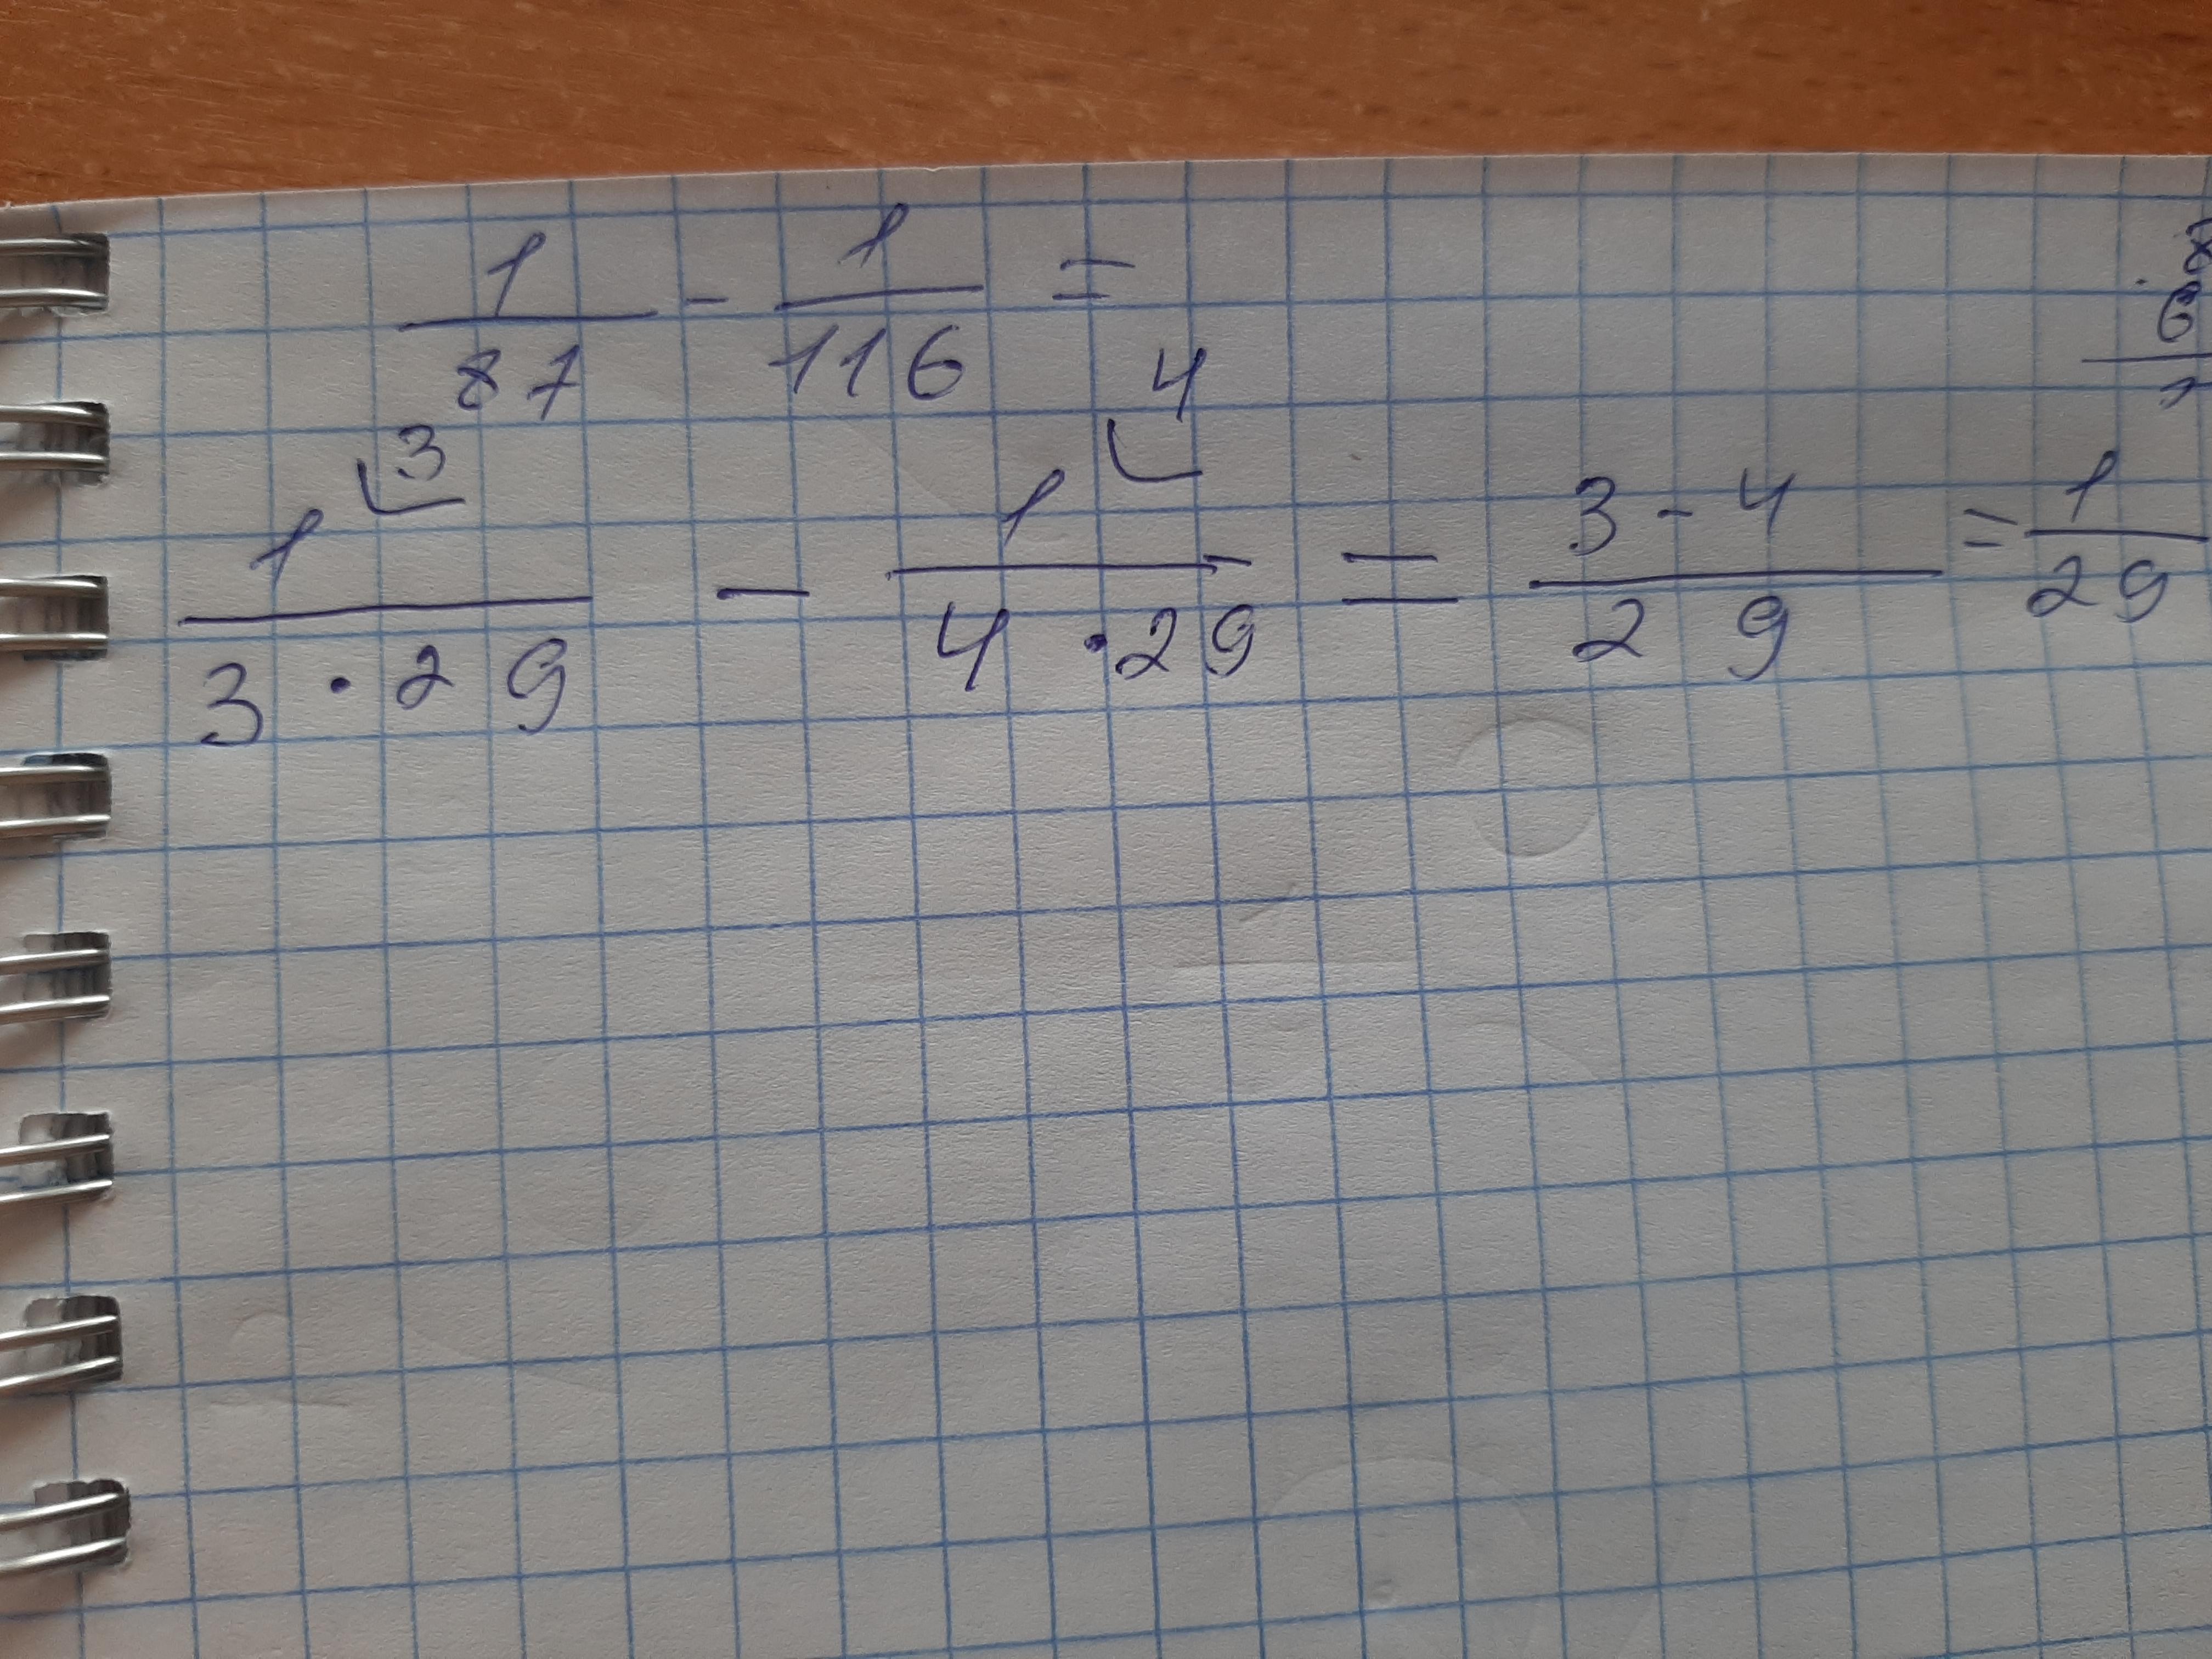 1/87 - 1/116 =
1/(3·29) ⌊3 - 1/(4·29) ⌊4 = (3-4)/29 = 1/29